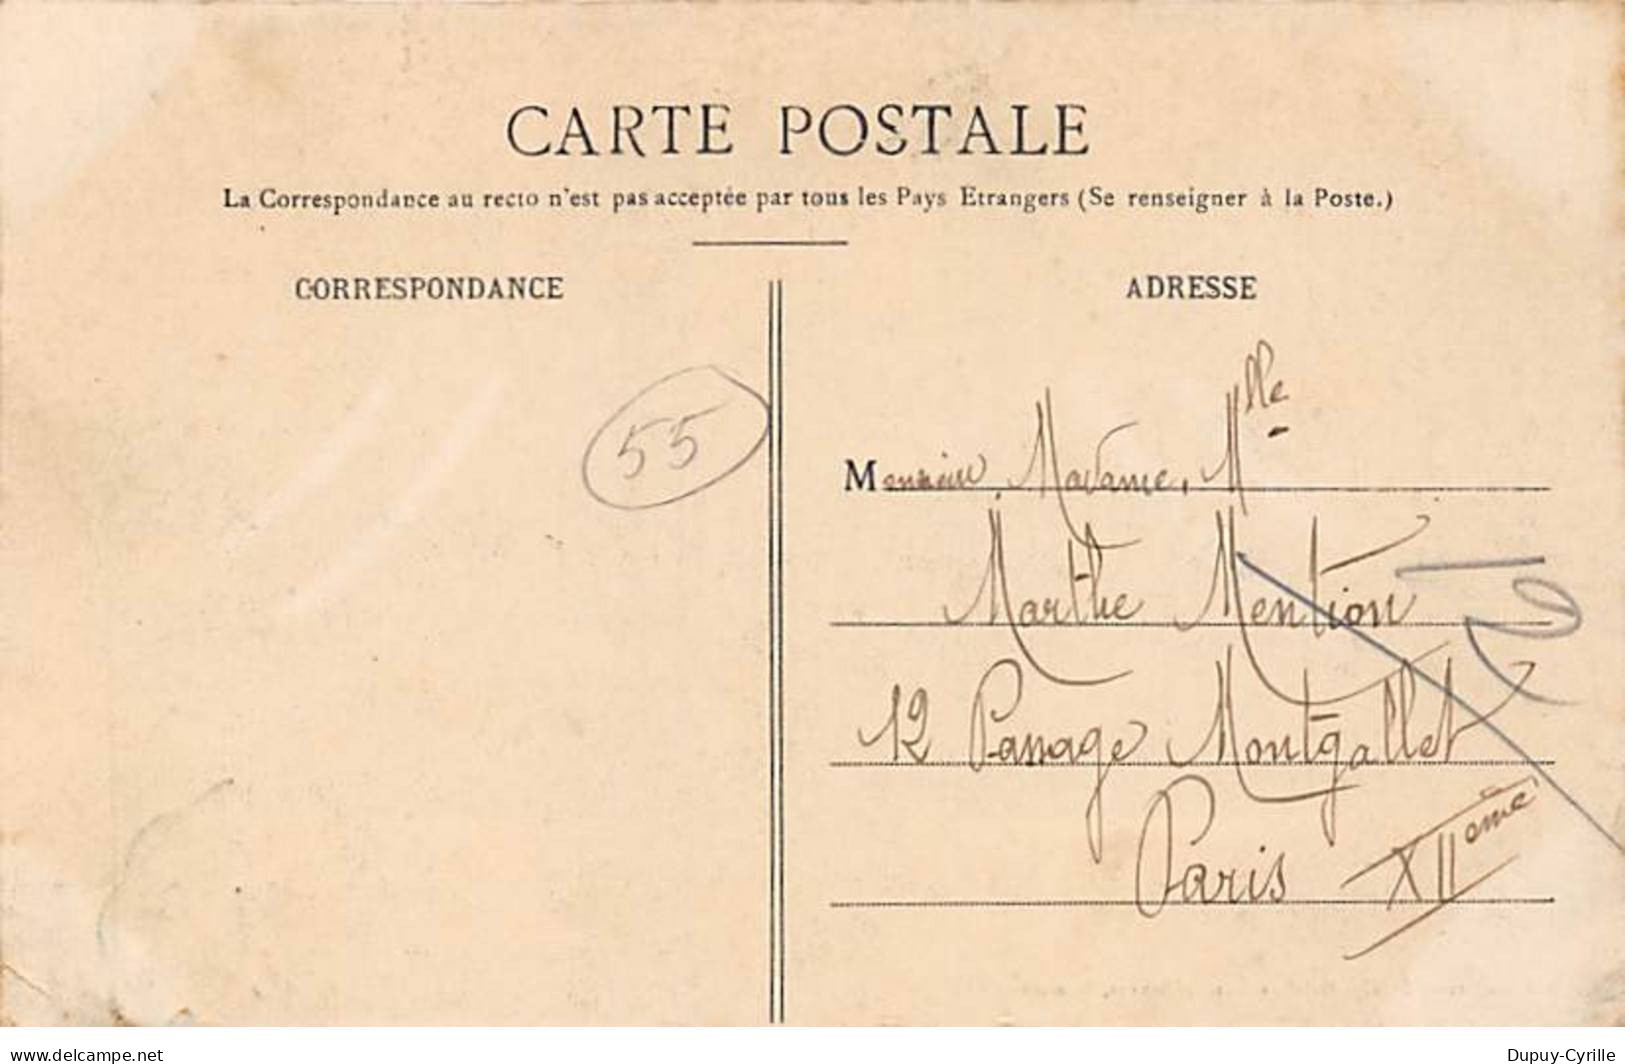 CARTE POSTALE
La Correspondance au recto n'est pas acceptée par tous les Pays Etrangers (Se renseigner à la Poste.)
CORRESPONDANCE
ADRESSE
55
Monsieur, Madame, Mlle
Marthe Mention
12 Passage Montgallet
Paris XIIème
www.delcampe.net
Dupuy-Cyrille